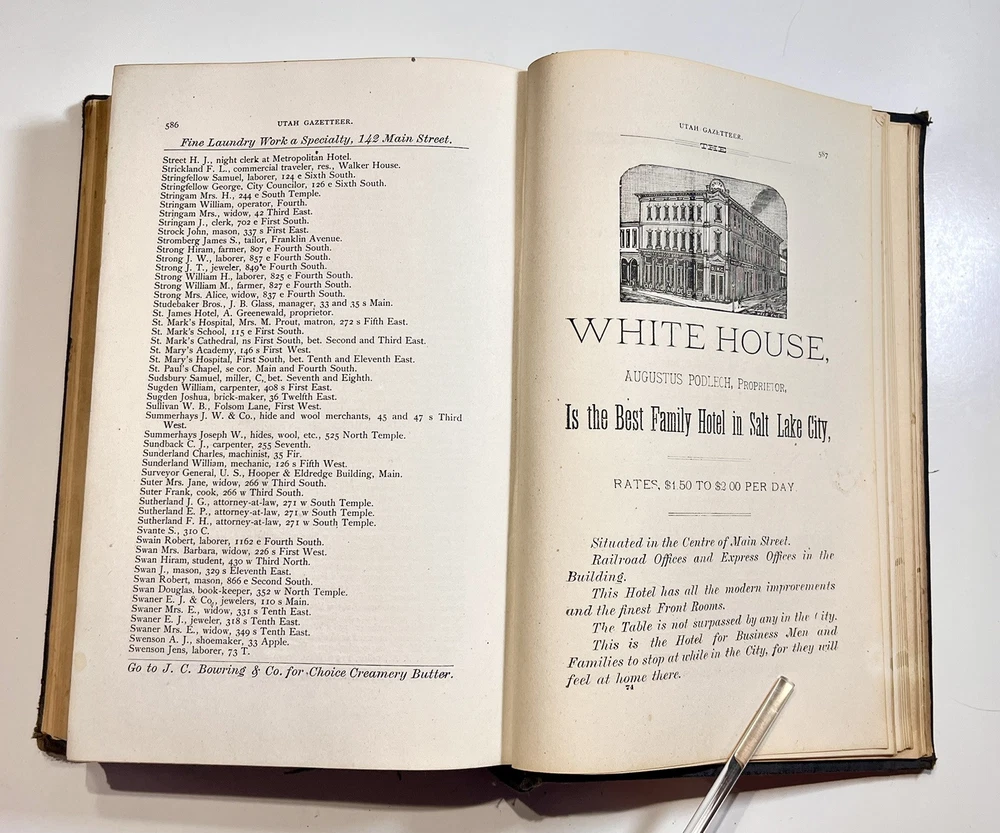 586
UTAH GAZETTEER.
Fine Laundry Work a Specialty, 142 Main Street.
Street H. J., night clerk at Metropolitan Hotel.
Strickland F. L., commercial traveler, res., Walker House.
Stringfellow Samuel, laborer, 124 e Sixth South.
Stringfellow George, City Councilor, 126 e Sixth South.
Stringam Mrs. H., 244 e South Temple.
Stringam William, operator, Fourth.
Stringam Mrs., widow, 42 Third East.
Stringam J., clerk, 702 e First South.
Strock John, mason, 337 s First East.
Stromberg James S., tailor, Franklin Avenue.
Strong Hiram, farmer, 807 e Fourth South.
Strong J. W., laborer, 857 e Fourth South.
Strong J. T., jeweler, 849 e Fourth South.
Strong William H., laborer, 825 e Fourth South.
Strong William M., farmer, 827 e Fourth South.
Strong Mrs. Alice, widow, 837 e Fourth South.
Studebaker Bros., J. B. Glass, manager, 33 and 35 s Main.
St. James Hotel, A. Greenewald, proprietor.
St. Mark's Hospital, Mrs. M. Prout, matron, 272 s Fifth East.
St. Mark's School, 115 e First South.
St. Mark's Cathedral, ns First South, bet. Second and Third East.
St. Mary's Academy, 146 s First West.
St. Mary's Hospital, First South, bet. Tenth and Eleventh East.
St. Paul's Chapel, se cor. Main and Fourth South.
Sudsbury Samuel, miller, C, bet. Seventh and Eighth.
Sugden William, carpenter, 408 s First East.
Sugden Joshua, brick-maker, 36 Twelfth East.
Sullivan W. B., Folsom Lane, First West.
Summerhays J. W. & Co., hide and wool merchants, 45 and 47 s Third
West.
Summerhays Joseph W., hides, wool, etc., 525 North Temple.
Sundback C. J., carpenter, 255 Seventh.
Sunderland Charles, machinist, 35 Fir.
Sunderland William, mechanic, 126 s Fifth West.
Surveyor General, U. S., Hooper & Eldredge Building, Main.
Suter Mrs. Jane, widow, 266 w Third South.
Suter Frank, cook, 266 w Third South.
Sutherland J. G., attorney-at-law, 271 w South Temple.
Sutherland E. P., attorney-at-law, 271 w South Temple.
Sutherland F. H., attorney-at-law, 271 w South Temple.
Svante S., 310 C.
Swain Robert, laborer, 1162 e Fourth South.
Swan Mrs. Barbara, widow, 226 s First West.
Swan Hiram, student, 430 w Third North.
Swan J., mason, 329 s Eleventh East.
Swan Robert, mason, 866 e Second South.
Swan Douglas, book-keeper, 352 w North Temple.
Swaner E. J. & Co., jewelers, 110 s Main.
Swaner Mrs. E., widow, 331 s Tenth East.
Swaner E. J., jeweler, 318 s Tenth East.
Swaner Mrs. E., widow, 349 s Tenth East.
Swenson A. J., shoemaker, 33 Apple.
Swenson Jens, laborer, 73 T.
Go to J. C. Bowring & Co. for Choice Creamery Butter.
UTAH GAZETTEER.
587
THE
WHITE HOUSE,
AUGUSTUS PODLECH, PROPRIETOR,
Is the Best Family Hotel in Salt Lake City,
RATES, $1.50 TO $2.00 PER DAY.
Situated in the Centre of Main Street.
Railroad Offices and Express Offices in the
Building.
This Hotel has all the modern improvements
and the finest Front Rooms.
The Table is not surpassed by any in the City.
This is the Hotel for Business Men and
Families to stop at while in the City, for they will
feel at home there.
74